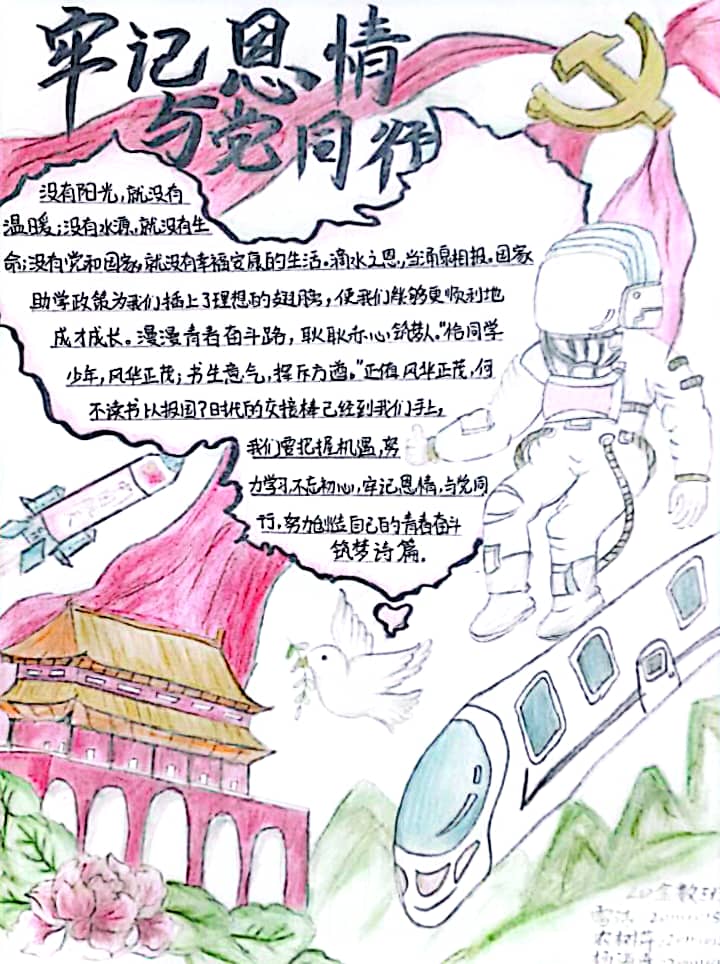 牢记恩情
与党同行
没有阳光,就没有
温暖;没有水源,就没有生
命;没有党和国家,就没有幸福安康的生活。滴水之恩,当涌泉相报。国家
助学政策为我们插上了理想的翅膀,使我们能够更顺利地
成才成长。漫漫青春奋斗路,耿耿赤心筑梦人。"恰同学
少年,风华正茂;书生意气,挥斥方遒。"正值风华正茂,何
不读书以报国?时代的交接棒已经到我们手上,
我们要把握机遇,努
力学习,不忘初心,牢记恩情,与党同
行,努力创造自己的青春奋斗
筑梦诗篇。